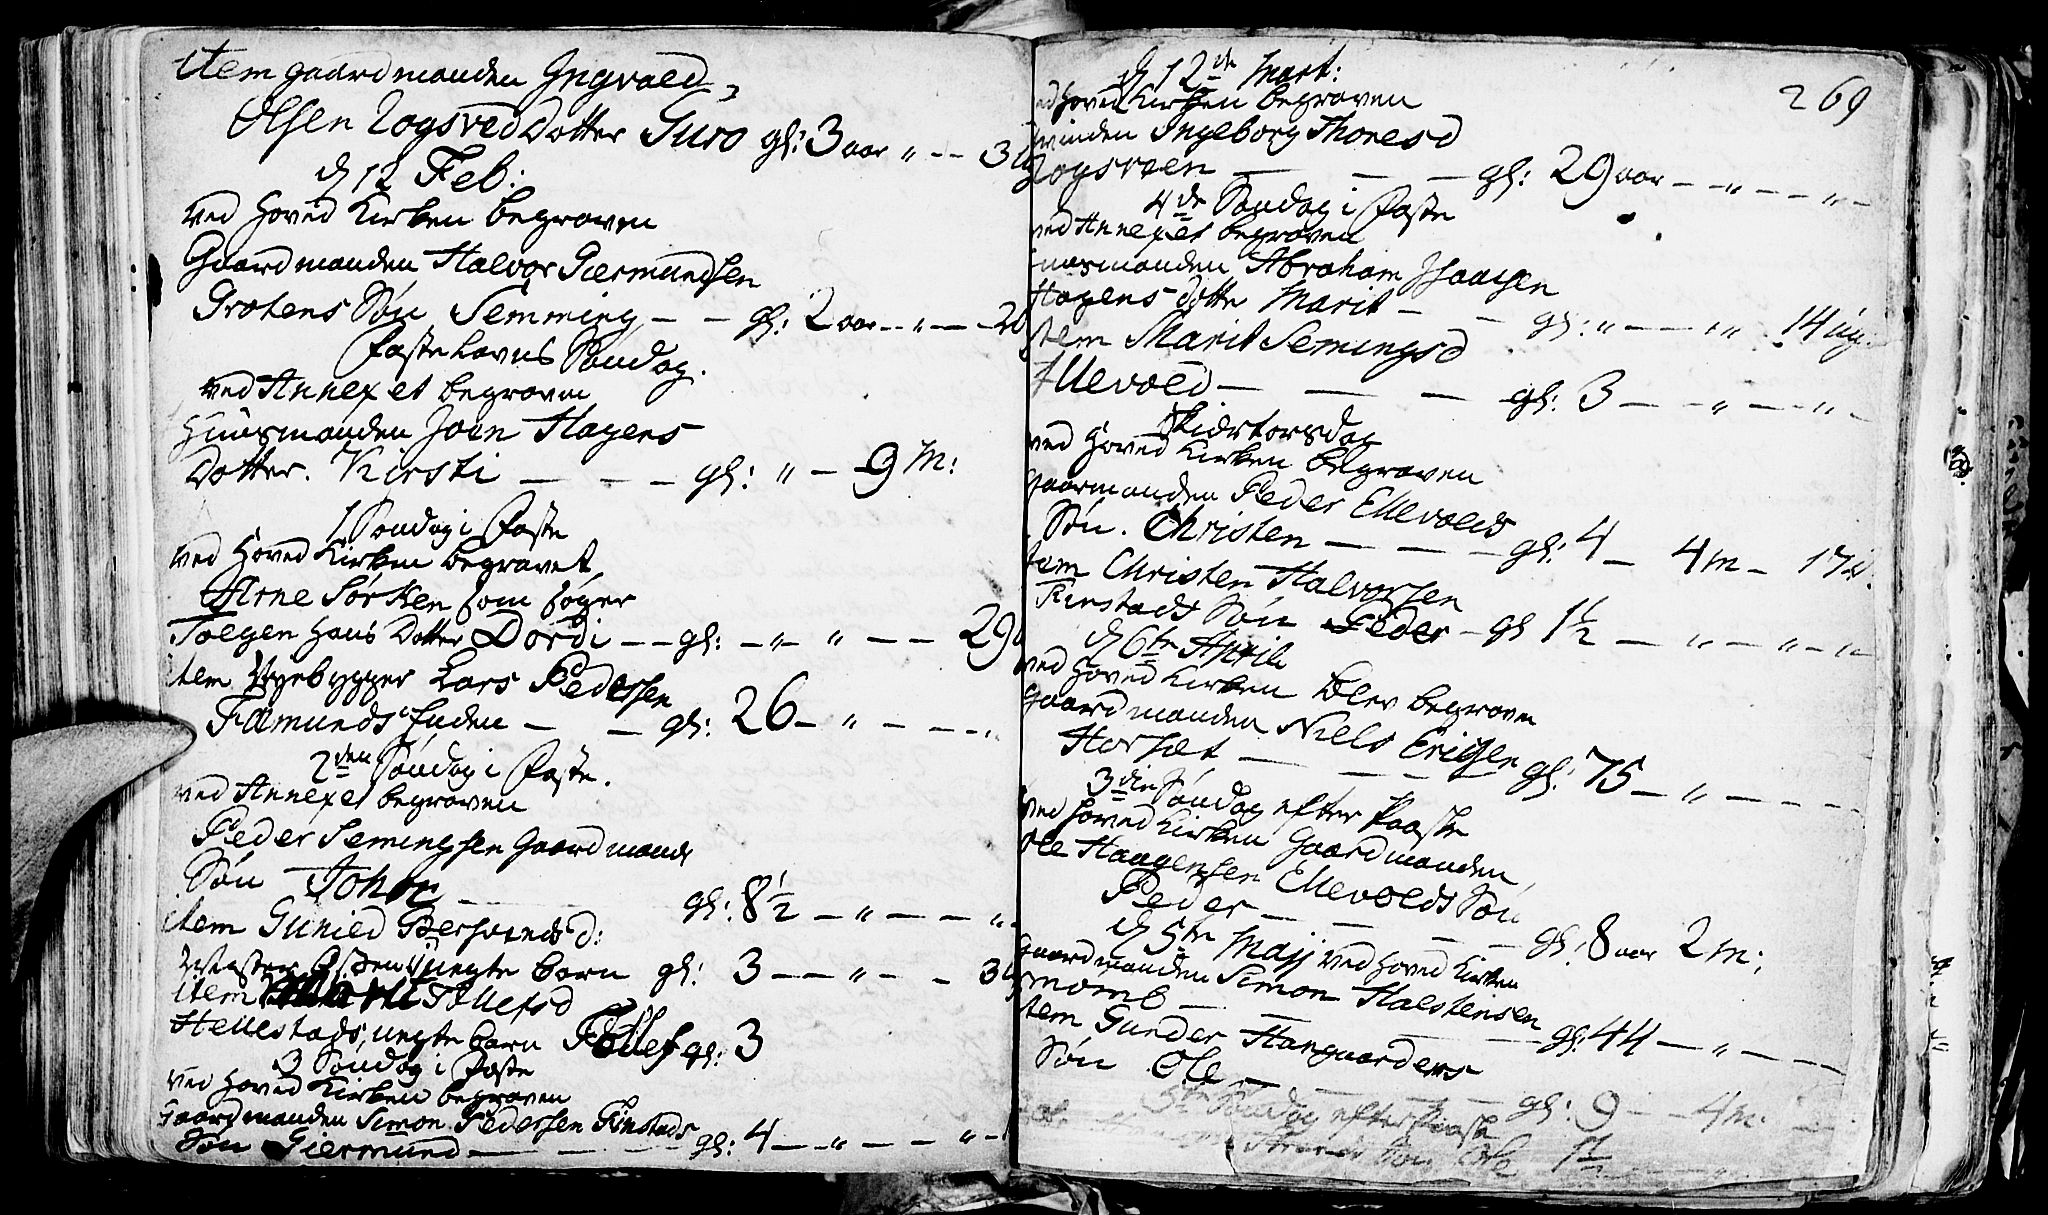 item gaardmanden Ingvald
Olsen Logsved Dotter Guro gl: 3 aar " - - 3
d 12 Feb:
ved Hoved Kirken begraven
Gaardmanden Halvor Giermundsen
Grotens Søn Semming - - gl: 2 aar - " - - 20
Fastelavns Søndag.
ved Annexet begraven
Huusmanden Joen Hagens
Dotter. Kirsti - - - gl: " - 9 M:
1 Søndag i Faste
ved Hoved Kirken begravet
Arne Sørken som søger
Tolgen hans Dotter Dordi - - gl: - " - " - - 29
item Nyebygger Lars Pedersen
Fæmunds Enden - - gl: 26 - " - - -
2den Søndag i Faste.
ved Annexet begraven
Peder Semingsen Gaardmands
Søn John - gl: 8½ - " - - "
item Gunild Bersvends d:
uegte barn gl: 3 - - " - - 3
item Tollefsd
Hellestads, uegte barn Tollef gl: 3
3 Søndag i Faste
ved Hoved Kirken begraven
Gaardmanden Simon Pedersen Finstads
Søn Giermund - - - gl: 4 - - " - - "
269
d 12te Mart:
ved Hoved Kirken begraven
Qvinden Ingeborg Thoresd
Logsveen - - - gl: 29 aar - - " - - " -
4de Søndag i Faste
ved Annexet begraven
Huusmanden Abraham Isaacsen
Hagens dotter Marit - - gl: " - - " " 14 ug.
item Marit Semingsd
Ellevold - - - gl: 3 - - " - - " -
Skiertorsdag
ved Hoved Kirken begraven
Gaarmanden Peder Ellevolds
Søn. Christen - - - gl: 4 - 4 m - 17 d.
item Christen Halvorsen
Finstads Søn Peder - gl 1½ - - " - - " - "
d 6te Aprili
ved Hoved Kirken blev begraven
Gaardmanden Niels Erichsen
Horsæt - - - - gl: 75 - " - - - -
3die Søndag efter Paaske
ved Hoved Kirken Gaardmanden
Ole Haagensen Ellevolds Søn
Peder - - - - gl: 8 aar 2 m:
d 5te Majj ved Hoved Kirken
Gaardmanden Simon Halstensen
- - - gl: 44 - " - - -
item Gunder Hangaardens
Søn Ole - - - - gl: 9 - - 4 m:
5te Søndag efter Paaske
Søn Ole 1½